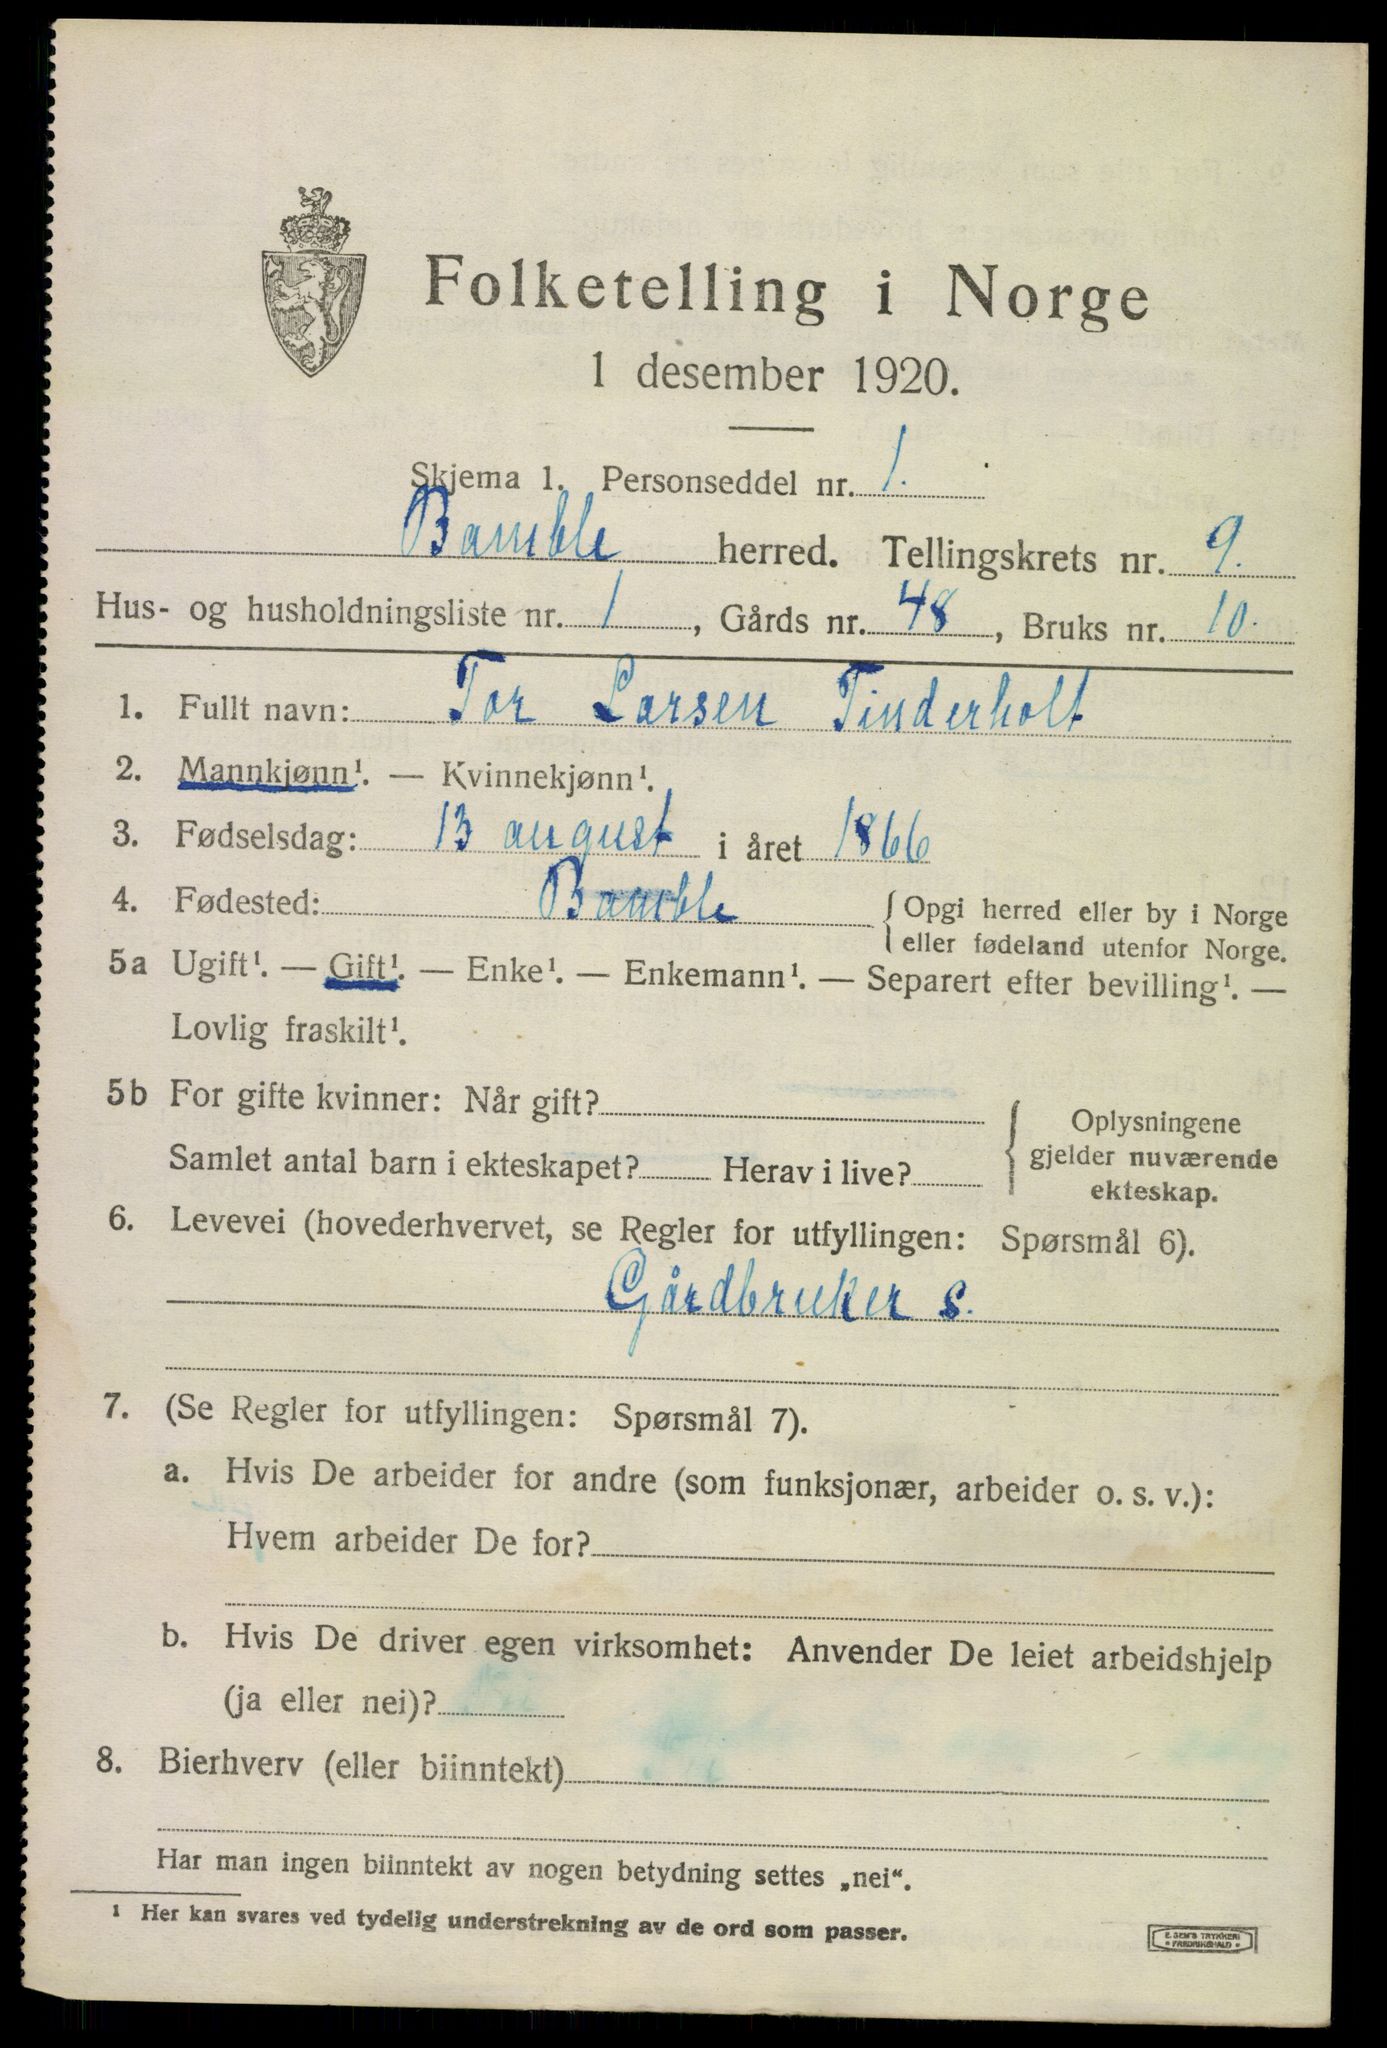 Folketelling i Norge
1 desember 1920.
Skjema 1. Personseddel nr. 1.
Bamble herred. Tellingskrets nr. 9.
Hus- og husholdningsliste nr. 1, Gårds nr. 48, Bruks nr. 10.
1. Fullt navn: Tor Larsen Tinderholt
2. Mannkjønn¹. — Kvinnekjønn¹.
3. Fødselsdag: 13 august i året 1866
4. Fødested: Bamble { Opgi herred eller by i Norge
eller fødeland utenfor Norge.
5a Ugift¹. — Gift¹. — Enke¹. — Enkemann¹. — Separert efter bevilling¹. —
Lovlig fraskilt¹.
5b For gifte kvinner: Når gift?
Samlet antal barn i ekteskapet? Herav i live?
{ Oplysningene
gjelder nuværende
ekteskap.
6. Levevei (hovederhvervet, se Regler for utfyllingen: Spørsmål 6).
Gårdbruker s.
7. (Se Regler for utfyllingen: Spørsmål 7).
a. Hvis De arbeider for andre (som funksjonær, arbeider o. s. v.):
Hvem arbeider De for?
b. Hvis De driver egen virksomhet: Anvender De leiet arbeidshjelp
(ja eller nei)?
8. Bierhverv (eller biinntekt)
Har man ingen biinntekt av nogen betydning settes „nei“.
¹ Her kan svares ved tydelig understrekning av de ord som passer.
E. SEM'S TRYKKERI
FREDRIKSHALD